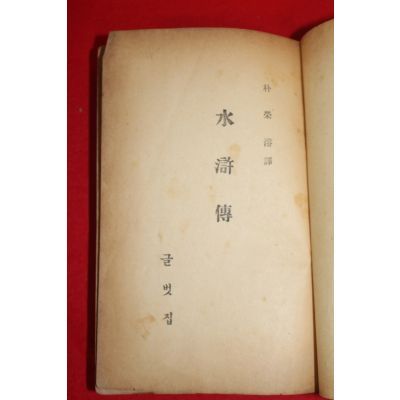 朴榮濬譯
水滸傳
글벗집